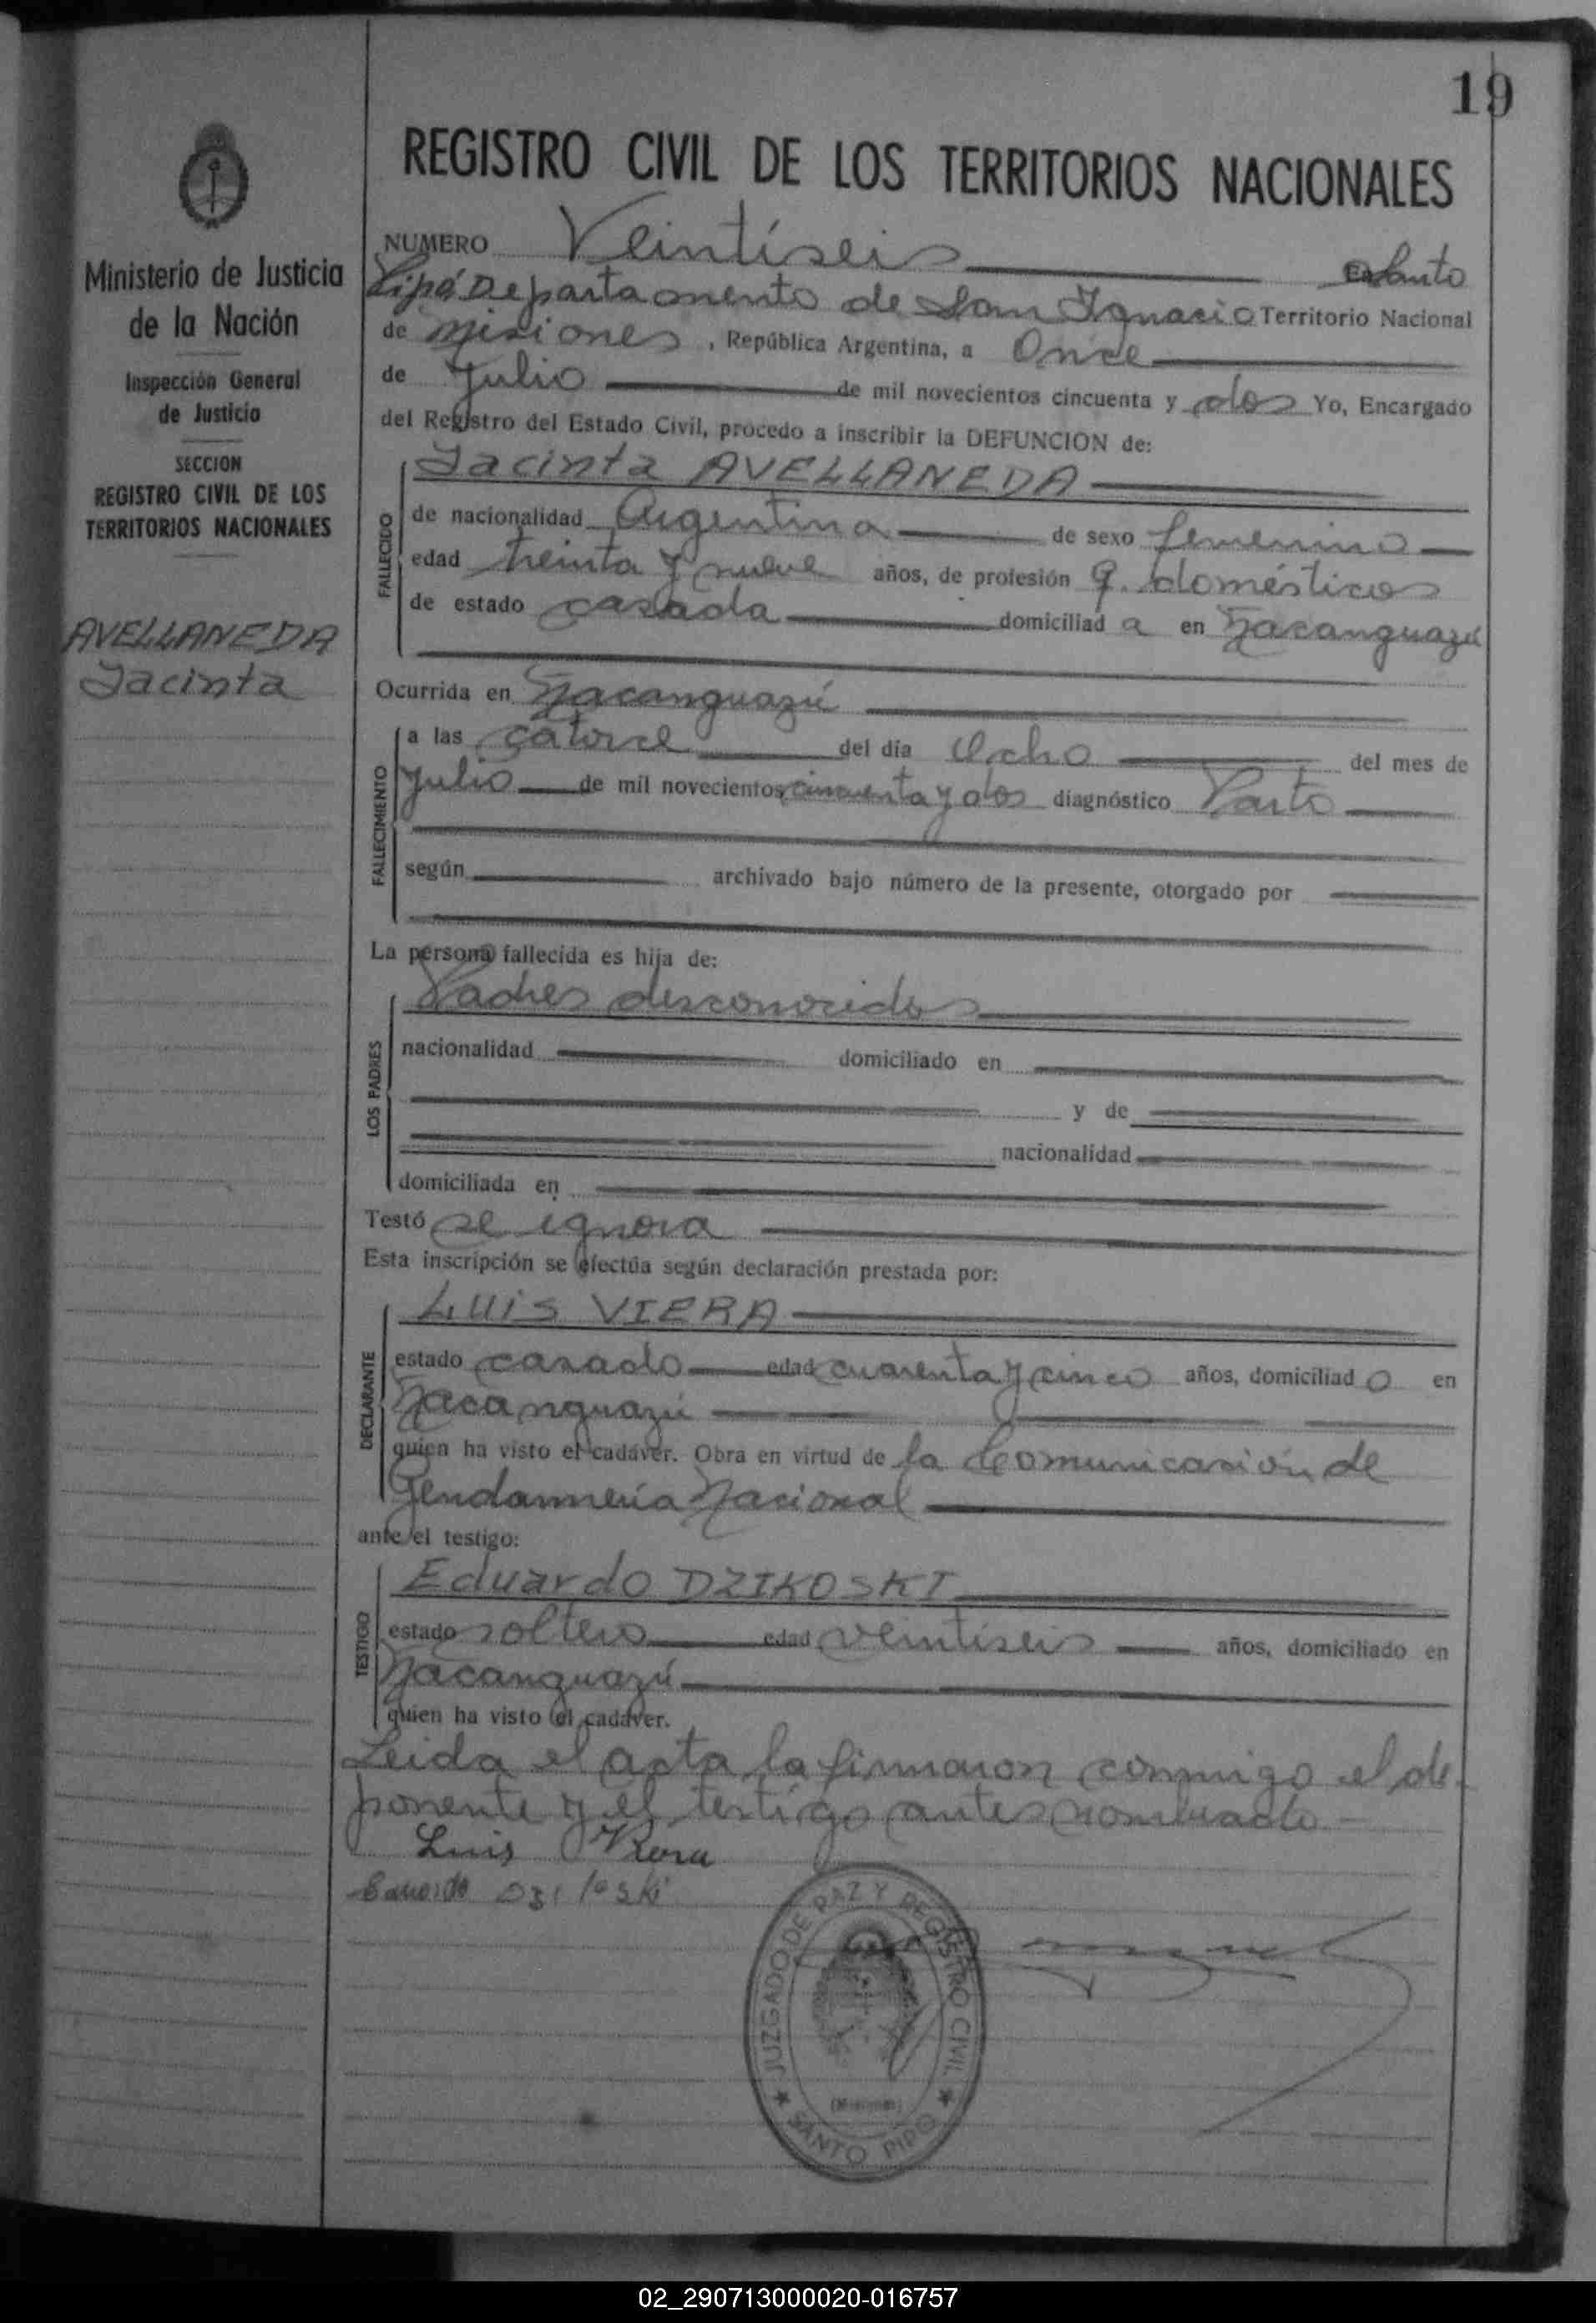 19
REGISTRO CIVIL DE LOS TERRITORIOS NACIONALES
Ministerio de Justicia
de la Nación
Inspección General
de Justicia
SECCION
REGISTRO CIVIL DE LOS
TERRITORIOS NACIONALES
AVELLANEDA
Jacinta
NUMERO Veintiseis En Santo
Pipó Departamento de San Ignacio Territorio Nacional
de Misiones, República Argentina, a Once
de Julio de mil novecientos cincuenta y dos Yo, Encargado
del Registro del Estado Civil, procedo a inscribir la DEFUNCION de:
FALLECIDO
Jacinta AVELLANEDA
de nacionalidad Argentina de sexo femenino
edad treinta y nueve años, de profesión q. domésticos
de estado casada domiciliad a en Ñacanguazú
Ocurrida en Ñacanguazú
FALLECIMIENTO
a las catorce del día Ocho del mes de
Julio de mil novecientos cincuenta y dos diagnóstico Parto
según archivado bajo número de la presente, otorgado por
La persona fallecida es hija de:
LOS PADRES
Padres desconocidos
nacionalidad domiciliado en
y de
nacionalidad
domiciliada en
Testó se ignora
Esta inscripción se efectúa según declaración prestada por:
DECLARANTE
LUIS VIERA
estado casado edad cuarenta y cinco años, domiciliad o en
Ñacanguazú
quien ha visto el cadáver. Obra en virtud de la Comunicación de
Gendarmería Nacional
ante el testigo:
TESTIGO
Eduardo DZIKOSKI
estado soltero edad veintiseis años, domiciliado en
Ñacanguazú
quien ha visto el cadáver.
Leida el acta la firmaron conmigo el de-
ponente y el testigo antes nombrado
Luis Viera
JUZGADO DE PAZ Y REGISTRO CIVIL
(Misiones)
SANTO PIPO
02_290713000020-016757